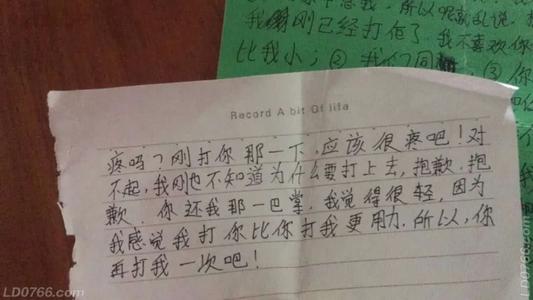 我，所以呢就乱说，
刚已经打 了 我不喜欢你
比我小；② 我们同 ；③ 你
Record A bit Of life
疼吗？刚打你那一下，应该很疼吧！对
不起，我刚也不知道为什么要打上去，抱歉．抱
歉．你还我那一巴掌，我觉得很轻，因为
我感觉我打你比你打我更用力．所以，你
再打我一次吧！
LD0766.com
LD0766.com